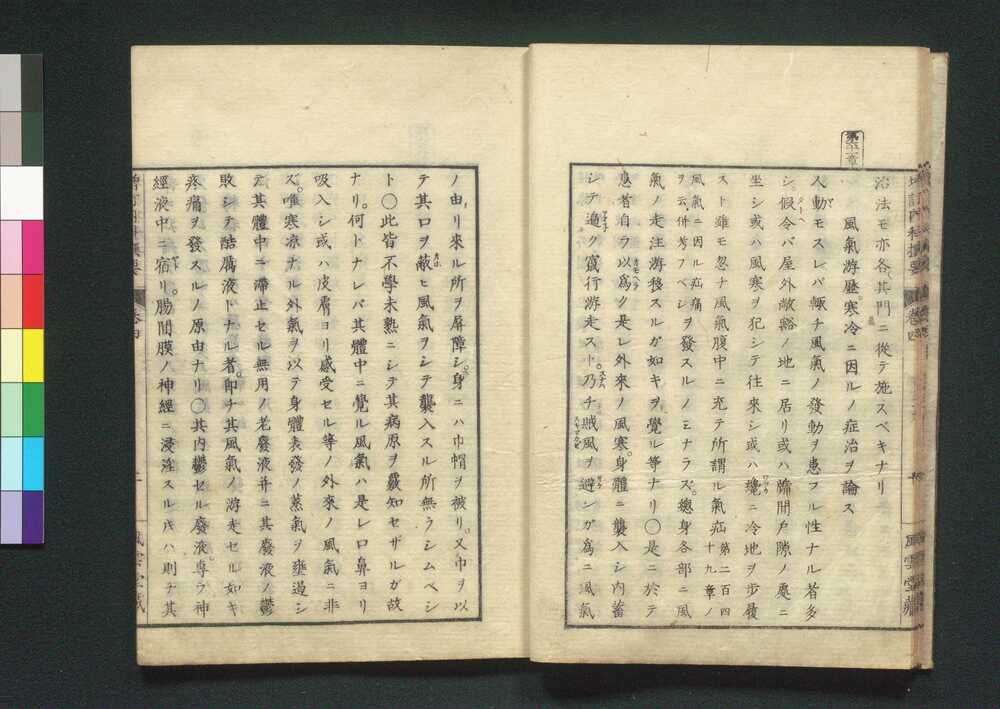 治法モ亦各其門ニ從テ施スベキナリ
第二章
風氣游歷寒冷ニ因ルノ症治ヲ論ス
人動モスレバ輙チ風氣ノ發動ヲ患フル性ナル者多
シ假令バ屋外敞豁ノ地ニ居リ或ハ牖間戶隙ノ處ニ
坐シ或ハ風寒ヲ犯シテ往來シ或ハ纔ニ冷地ヲ歩履
スト雖モ忽チ風氣腹中ニ充テ所謂ル氣疝第二百四十九章ノ
風氣ニ因ル疝痛ヲ云併考フベシヲ發スルノミナラズ總身各部ニ風
氣ノ走注游移スルガ如キヲ覺ル等ナリ〇是ニ於テ
患者自ラ以爲ク是レ外來ノ風寒身體ニ襲入シ内蓄
シテ遍ク竄行游走スト乃チ賊風ヲ避ンガ爲ニ風氣
ノ由リ來ル所ヲ屏障シ身ニハ巾帽ヲ被リ又巾ヲ以
テ其口ヲ蔽ヒ風氣ヲシテ襲入スル所無ラシムベシ
ト〇此皆不學未熟ニシテ其病原ヲ覈知セザルガ故
ナリ何トナレバ其體中ニ覺ル風氣ハ是レ口鼻ヨリ
吸入シ或ハ皮膚ヨリ感受セル等ノ外來ノ風氣ニ非
ズ唯寒凉ナル外氣ヲ以テ身體表發ノ蒸氣ヲ壅遏シ
テ其體中ニ滯止セル無用ノ老廢液并ニ其廢液ノ鬱
敗シテ酷厲液トナル者卽チ其風氣ノ游走セル如キ
疼痛ヲ發スルノ原由ナリ〇其内鬱セル廢液專ラ神
經液中ニ宿リ腸間膜ノ神經ニ浸淫スル𪜈ハ則チ其